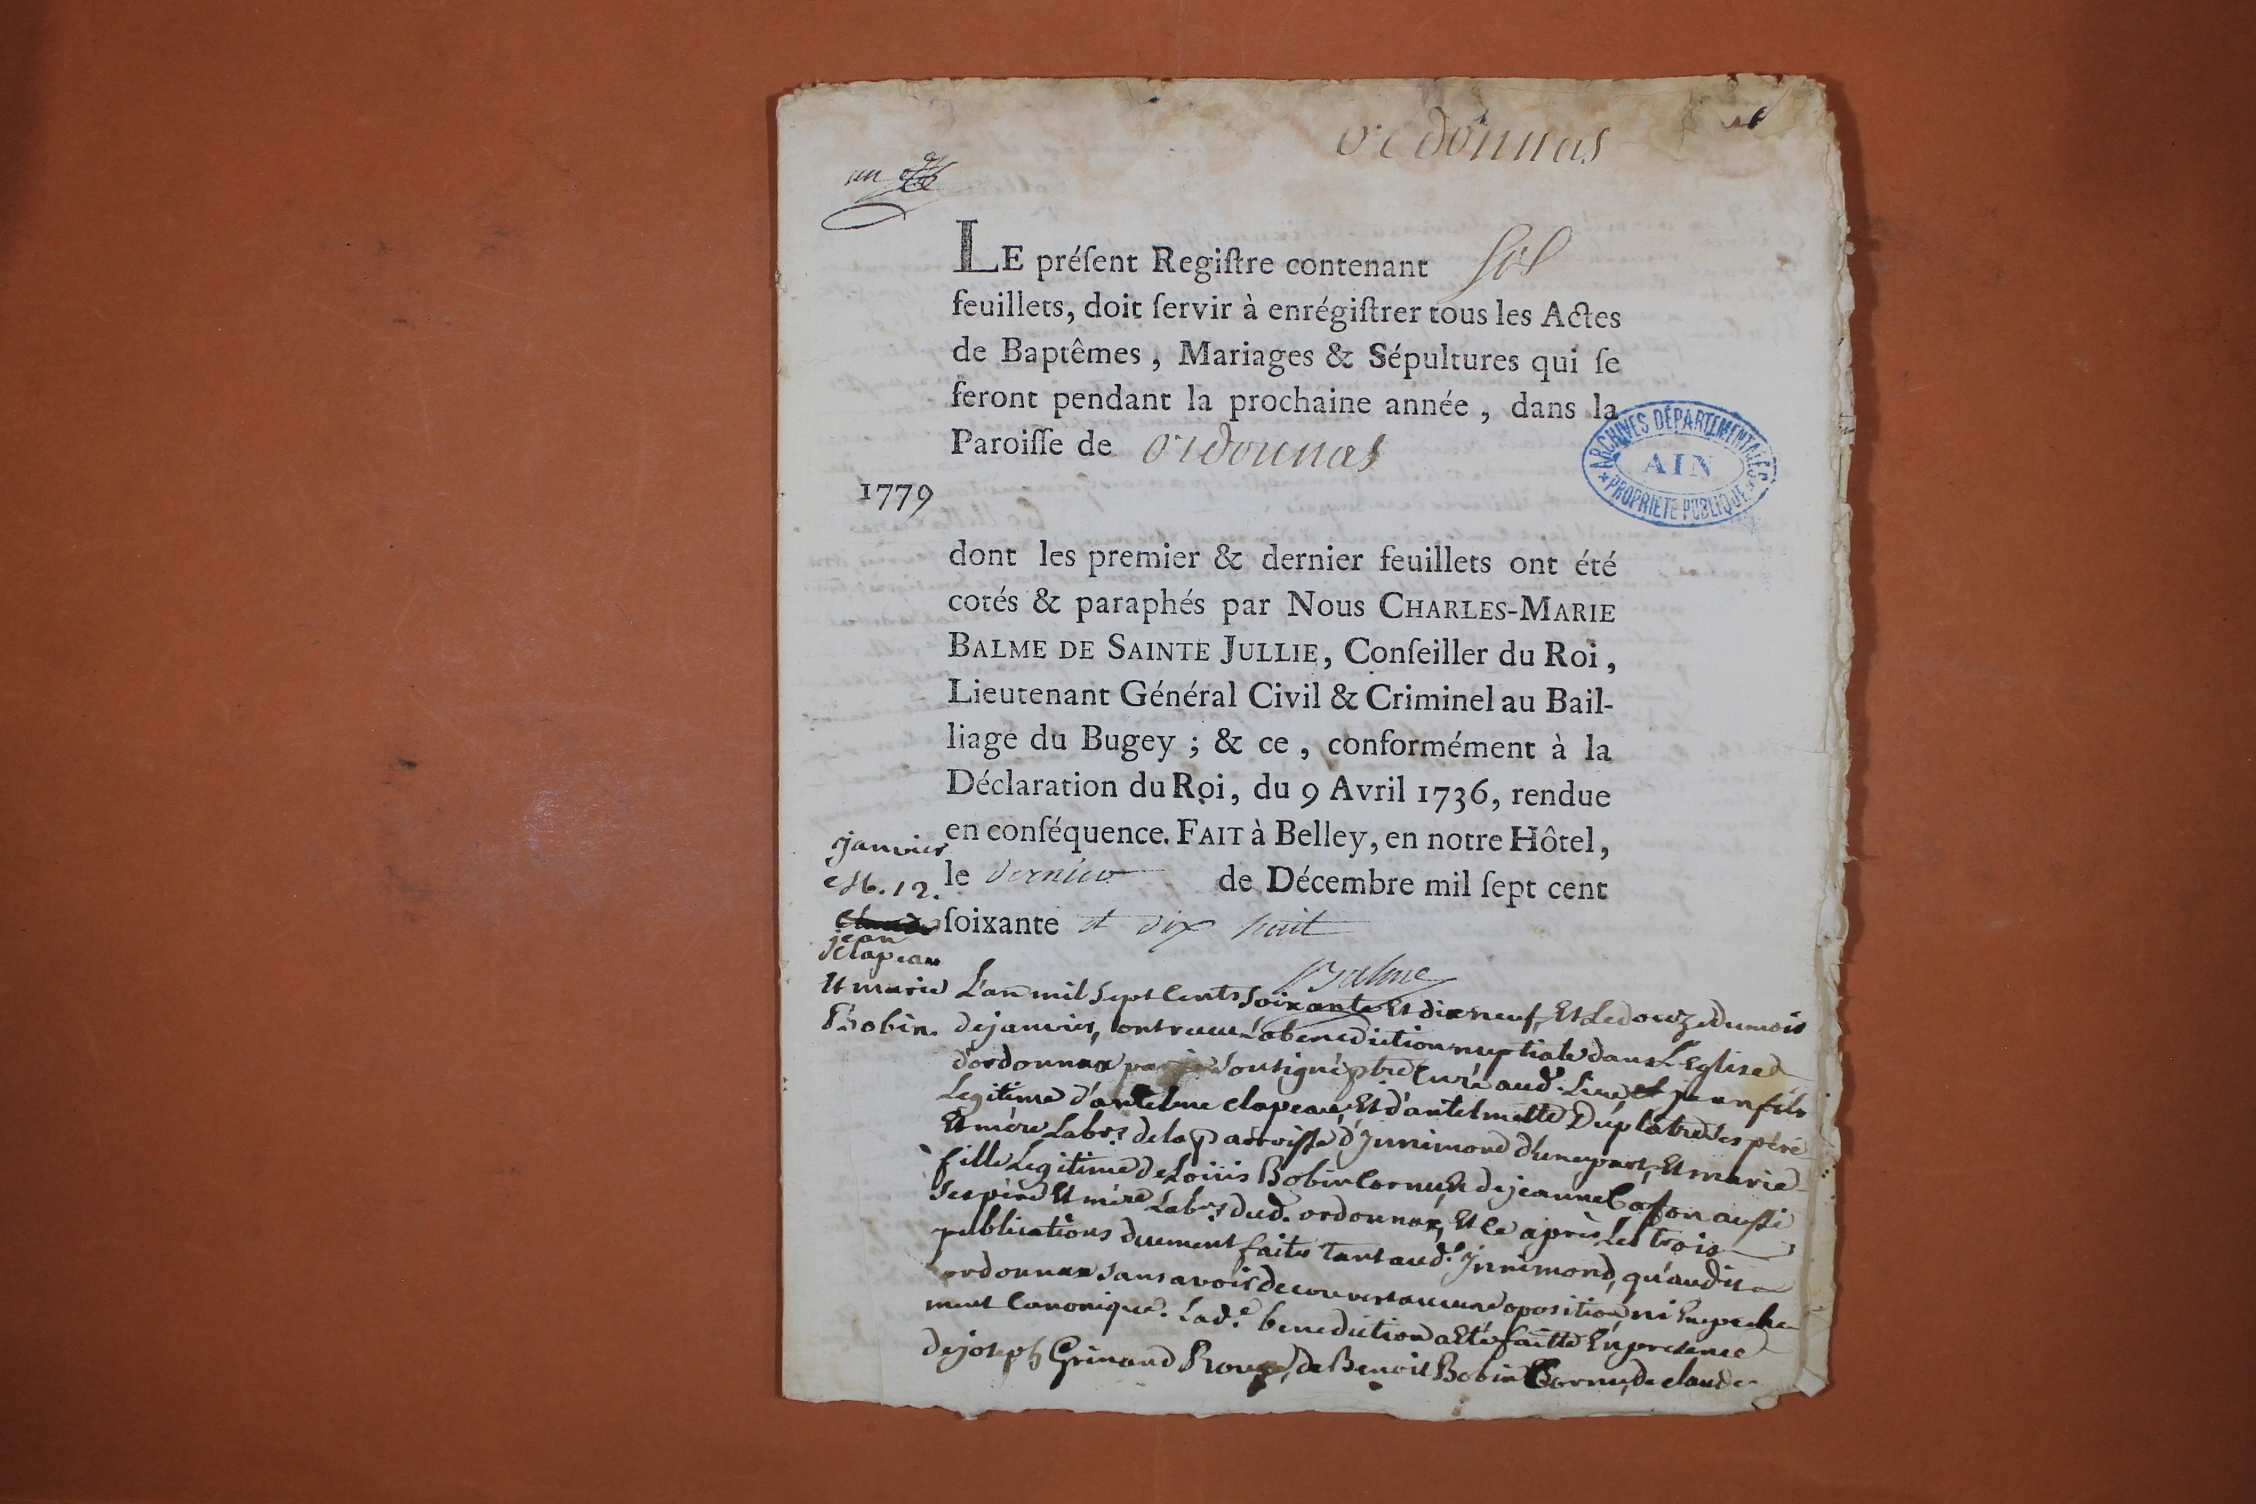 ordonnas
un
LE préſent Regiſtre contenant six
feuillets, doit ſervir à enrégiſtrer tous les Actes
de Baptêmes, Mariages & Sépultures qui ſe
feront pendant la prochaine année, dans la
Paroiſſe de ordonnas
1779
ARCHIVES DÉPARTEMENTALES
AIN
PROPRIETE PUBLIQUE
dont les premier & dernier feuillets ont été
cotés & paraphés par Nous CHARLES-MARIE
BALME DE SAINTE JULLIE, Conſeiller du Roi,
Lieutenant Général Civil & Criminel au Bail-
liage du Bugey; & ce, conformément à la
Déclaration du Roi, du 9 Avril 1736, rendue
en conſéquence. FAIT à Belley, en notre Hôtel,
le dernier de Décembre mil ſept cent
ſoixante et dix huit
Balme
janvier
12.
jean
Clapeau
Et marie
Bobin.
L'an mil sept cents soixante Et dix neuf, Et Le douze du mois
de janvier, ont receu La benediction nuptiale dans L'Eglise
d'ordonnax par je soussigné ptre Curé aud. Lieu, jean fils
Legitime d'antelme clapeau, Et d'antelmette Duplatre ses père
Et mère Labrs de la parroisse d'Innimond d'une part, Et marie
fille Legitime de Loüis Bobin Cornu, Et de jeanne aussi
ses père Et mère Labrs dud. ordonnax, Et ce après Les trois
publications duement faites tant aud. Innimond, qu'audit
ordonnax sans avoir decouvert aucune oposition, ni Empeche
ment Canonique. Lad.e benediction a Eté faitte En presence
de joseph Grinand Roux, de Benoit Bobin Cornu, de claude